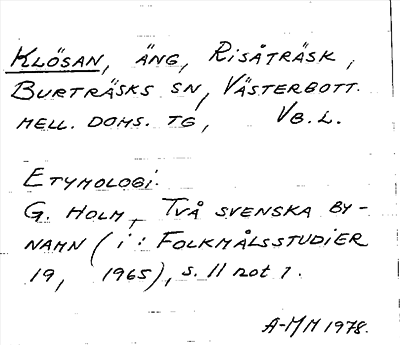 KLÖSAN, ÄNG, RISÅTRÄSK,
BURTRÄSKS SN, VÄSTERBOTT.
MELL. DOMS. TG, VB. L.
ETYMOLOGI.
G. HOLM, TVÅ SVENSKA BY-
NAMN (i: FOLKMÅLSSTUDIER
19, 1965), s. 11 not 1.
A-MH 1978.